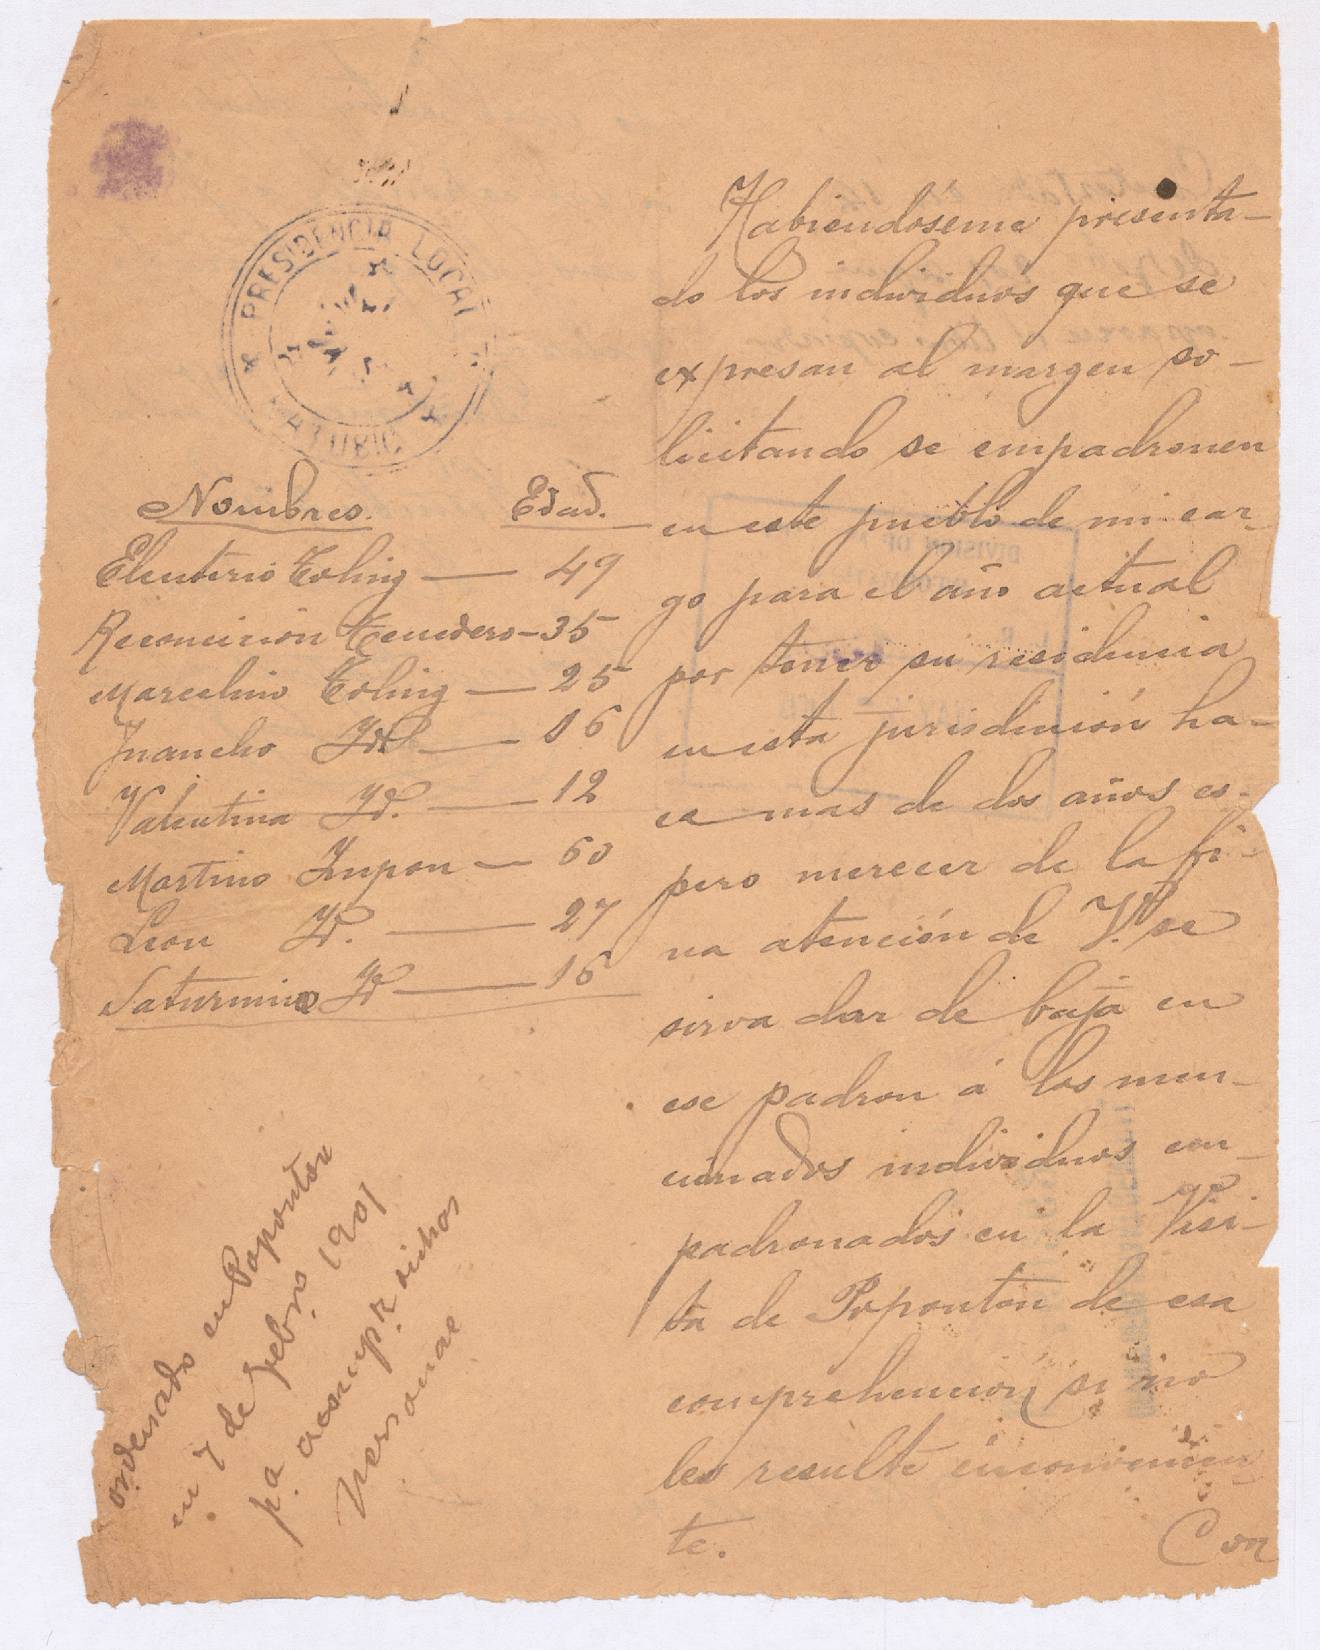 PRESIDENCIA LOCAL
CATUBIG
Nombres. Edad.
Eleuterio Toling — 49
Reconcicion Tenedero — 35
Marcelino Toling — 25
Juancho Yd. — 16
Valentina Yd. — 12
Martino Lupon — 60
Leon Yd. — 27
Saturnino Yd — 16
ordenado en Poponton
en 7 de Febro. 1901
pa. dichos
personas
Habiendóseme presenta-
do los individuos que se
expresan al margen so-
licitando se empadronen
en este pueblo de mi car-
go para el año actual
por tener su residencia
en esta jurisdicción ha-
ce mas de dos años es-
pero merecer de la fi-
na atención de V. se
sirva dar de baja en
ese padron á los men-
cionados individuos em-
padronados en la Visi-
ta de Poponton de esa
comprehención si no
les resulte inconvenien-
te. Con
DIVISION OF